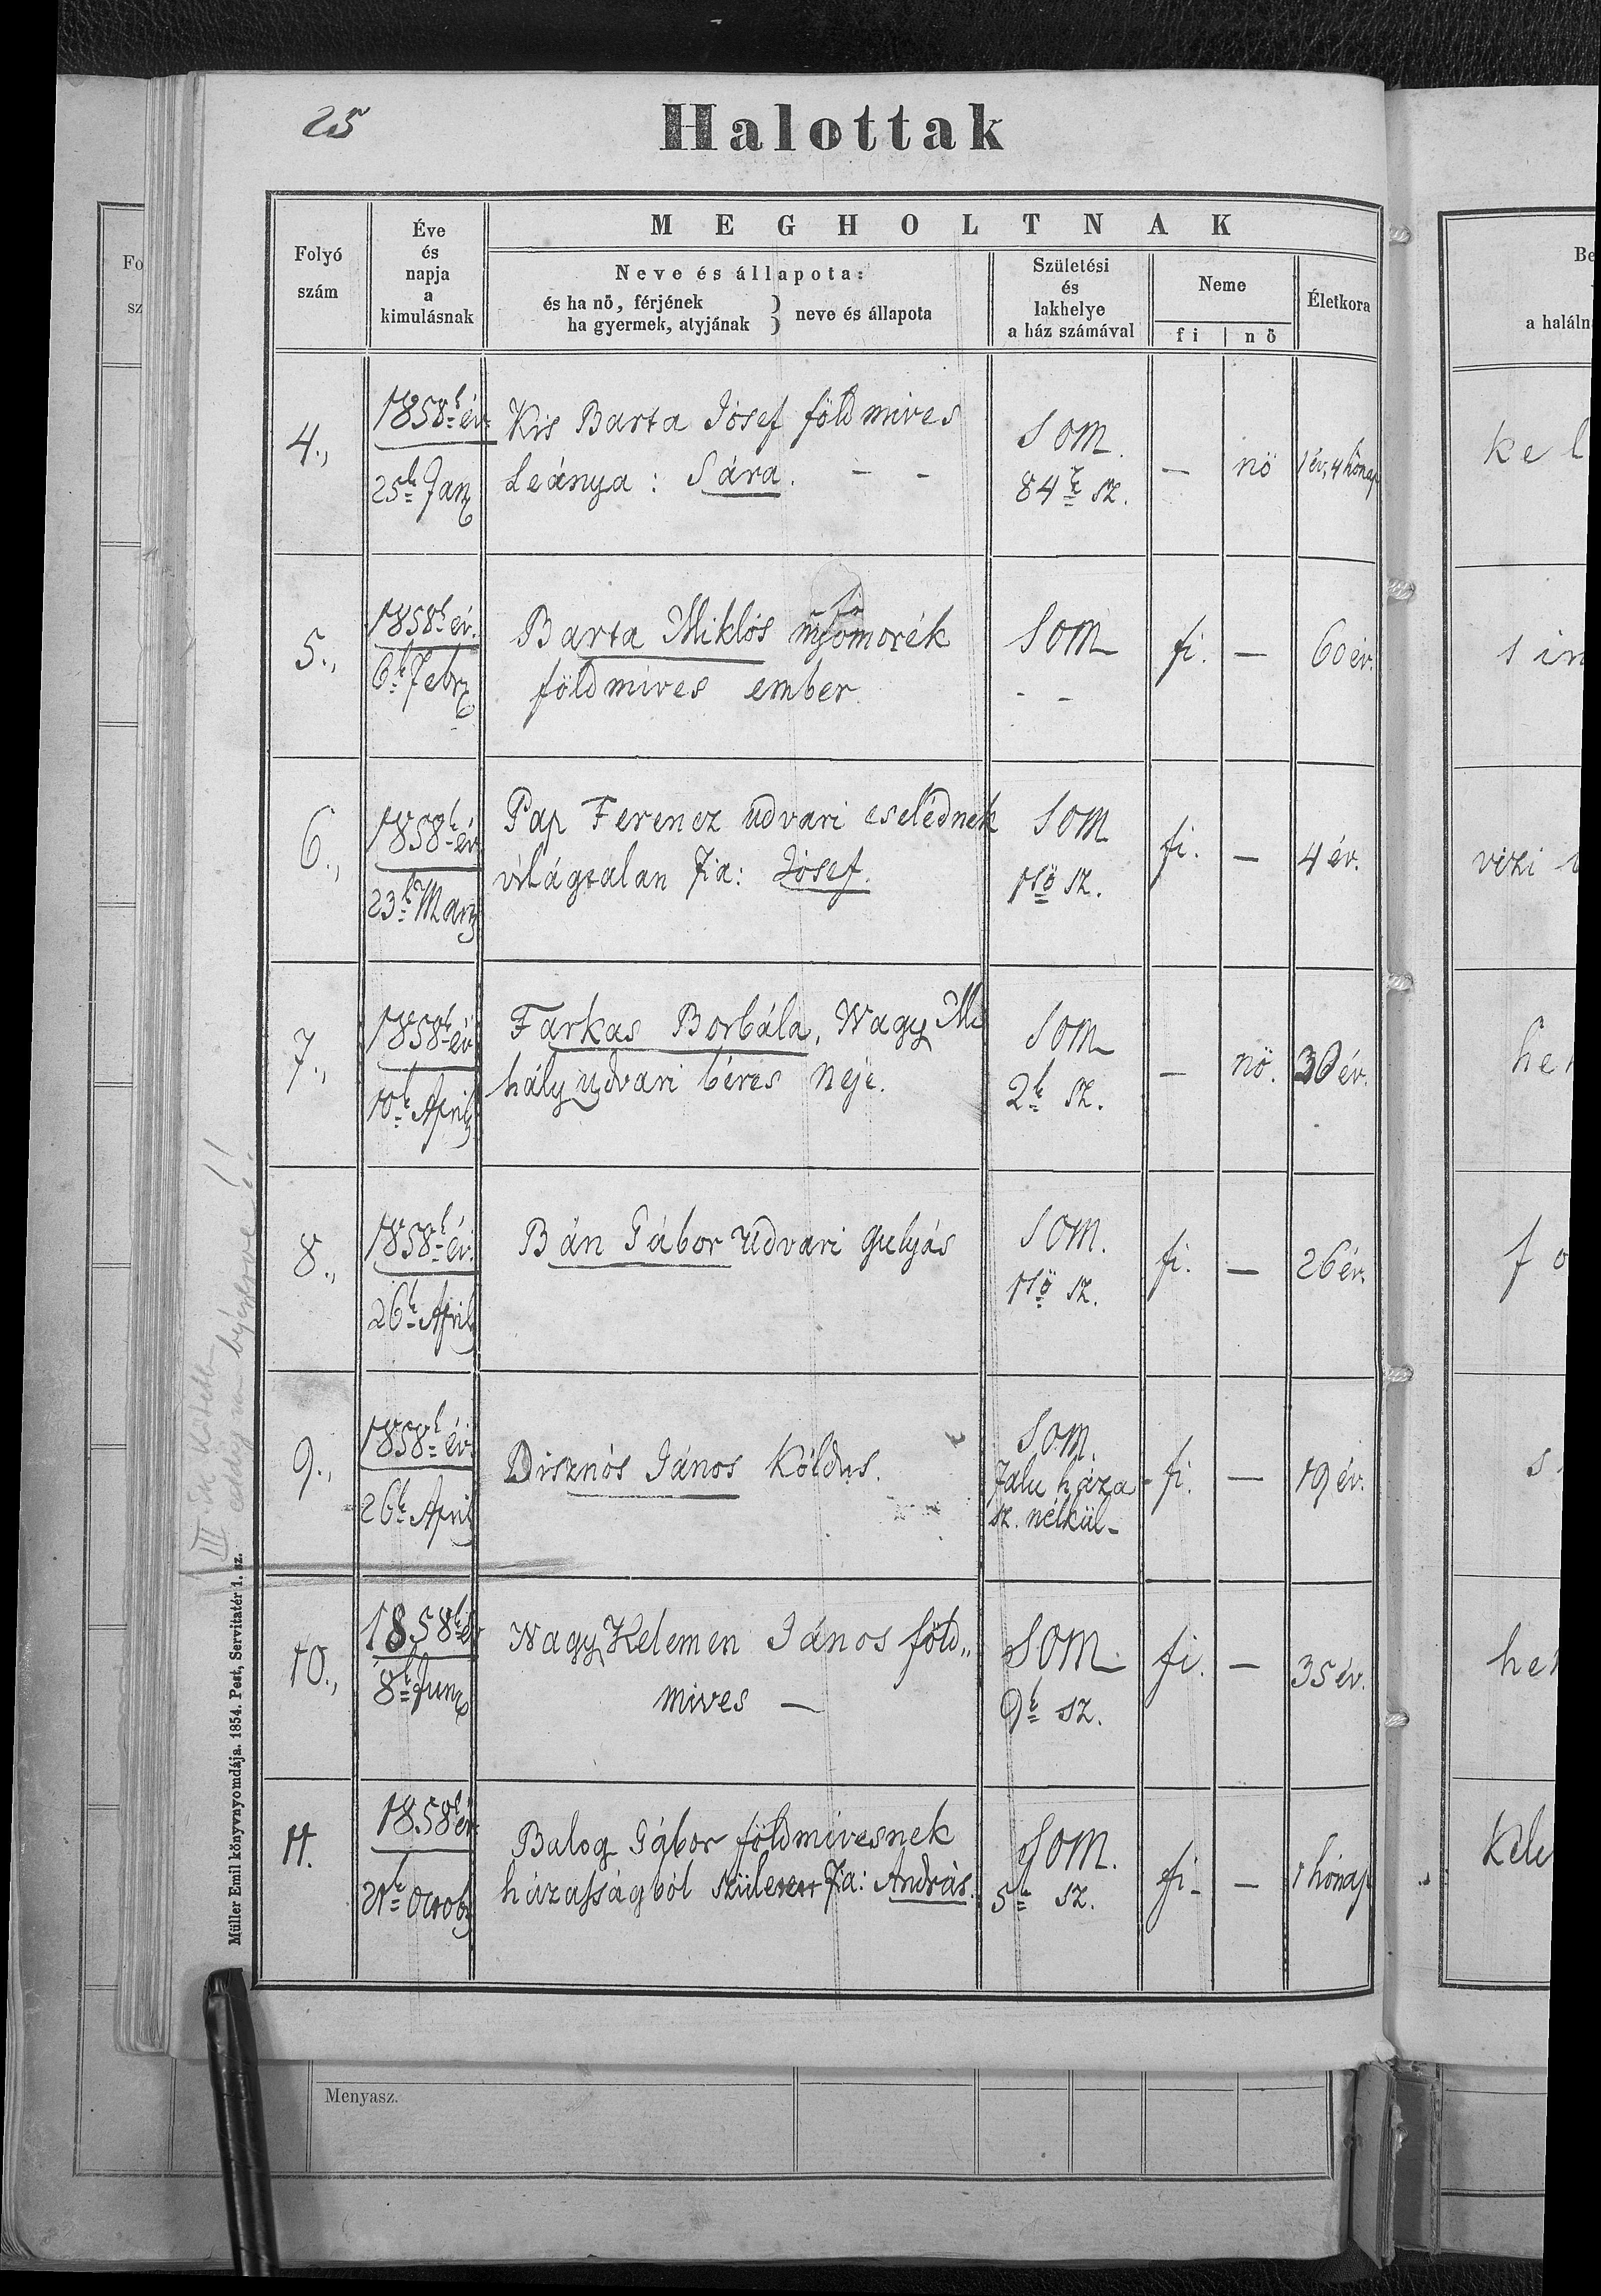 25
Halottak
Folyó
szám
Éve
és
napja
a
kimulásnak
MEGHOLTNAK
Neve és állapota:
és ha nő, férjének
ha gyermek, atyjának } neve és állapota
Születési
és
lakhelye
a ház számával
Neme
fi nő
Életkora
4.,
1858k év.
25k Jan
Kis Barta Jósef földmives
Leánya: Sára. - -
Som.
84k sz.
—
nő
1 év, 4 hónap
5.,
1858k év.
6k Febr
Barta Miklós nyomorék
földmives ember.
Som
- -
fi.
—
60 év.
6.,
1858k év
23k Marz
Pap Ferencz udvari cselédnek
világtalan fia: Jósef.
Som
1ső sz.
fi.
—
4 év.
7.,
1858k év
10k April
Farkas Borbála, Nagy Mi
hály udvari béres neje.
Som
2k sz.
—
nő.
30 év.
8.,
1858k év.
26k April
Bán Gábor udvari gulyás
Som.
1ső sz.
fi.
—
26 év.
9.,
1858k év.
26k April
Disznós János Kóldus.
Som.
falu háza
sz. nélkül-
fi.
—
19 év.
10.,
1858k év
8k Jun
Nagy Kelemen János föld„
mives —
Som
9k sz.
fi.
—
35 év.
11.
1858k év
21k Octob
Balog Gábor földmivesnek
házasságból született fia: András.
Som.
5k sz.
fi-
—
1 hónap
Müller Emil könyvnyomdája. 1854. Pest, Servitatér 1. sz.
Menyasz.
Fo
sz
Be
a haláln
kel
vizi
Kele